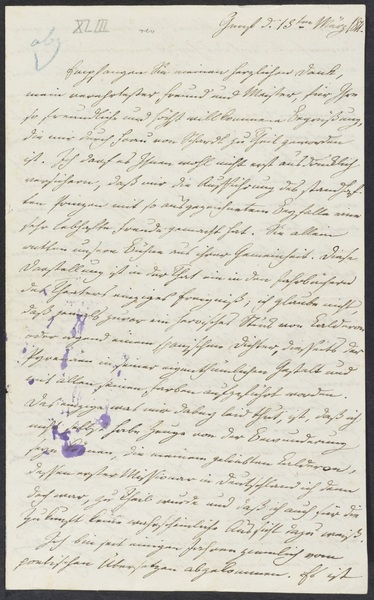 abg
XLIII
Genf d. 15ten März 1811.
Empfangen Sie meinen herzlichen Dank,
mein verehrtester Freund und Meister, für Ihre
so freundliche und höchst willkommene Begrüßung,
die mir durch Frau von Schardt zu Theil geworden
ist. Ich darf es Ihnen wohl nicht erst ausdrücklich
versichern, daß mir die Aufführung des standhaf-
ten Prinzen mit so ausgezeichnetem Beyfalle eine
sehr lebhafte Freude gemacht hat. Sie allein
retten unsre Bühne aus ihrer Gemeinheit. Diese
Darstellung ist in der That ein in den Jahrbüchern
des Theaters einziges Ereigniß; ich glaube nicht,
daß jemals zuvor ein heroisches Stück von Calderon
oder irgend einem spanischen Dichter, diesseits der
Pyrenäen in seiner eigenthümlichen Gestalt und
mit allen seinen Farben aufgeführt worden.
Das einzige was mir dabey leid thut, ist, daß ich
nicht habe Zeuge von der Bewunderung
seyn können, die meinem geliebten Calderon,
dessen erster Missionar in Deutschland ich denn
doch war, zu Theil wurde und daß ich auch für die
Zukunft keine wahrscheinliche Aussicht dazu weiß.
Ich bin seit einigen Jahren ziemlich vom
poetischen Übersetzen abgekommen. Es ist